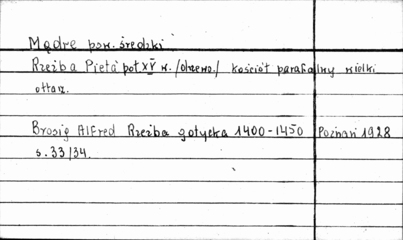 Mądre pow. średzki
Rzeźba Pieta poł XV w. /drzewo./ kościół parafialny wielki
ołtarz.
Brosig Alfred Rzeźba gotycka 1400-1450 Poznań 1928
s. 33/34.